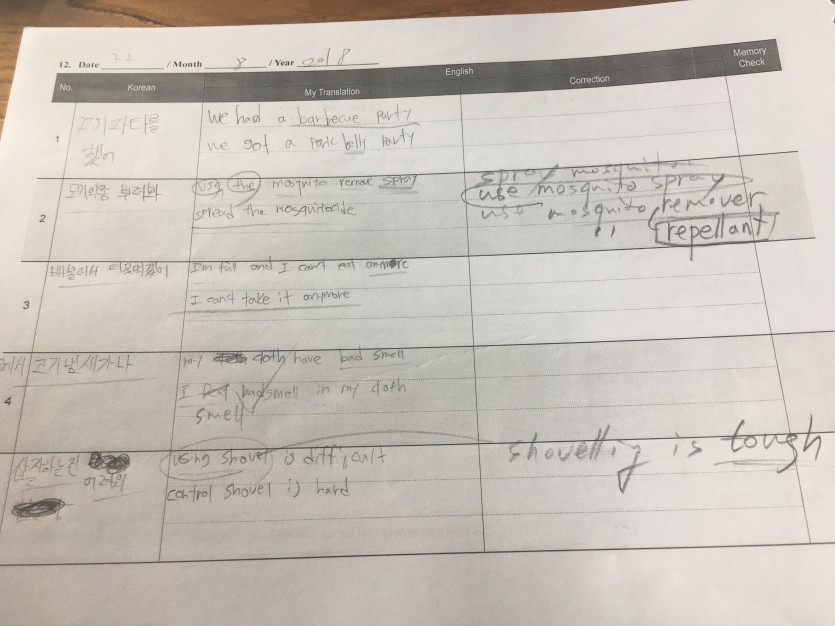 12. Date 22 / Month 8 / Year 2018
No. Korean My Translation English Correction Memory Check
1
고기파티를
했어
We had a barbecue party
we got a pork belly party
2
모기약을 뿌려봐
using the mosquito remove spray
spread the mosquitocide
spray mosquito
use mosquito spray
use mosquito remover
" repellant
3
배불러서 더못먹겠어
I'm full and I can't eat anymore
I can't take it anymore
4
에서 고기냄새가나
my cloth have bad smell
I feel bad smell in my cloth
smell
삽질하는건
어려워
using shovel is difficult
control shovel is hard
shovelling is tough